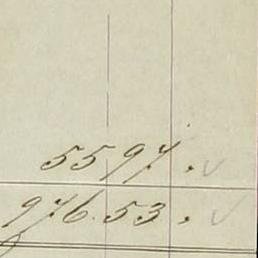 5597. ✓
976.53. ✓